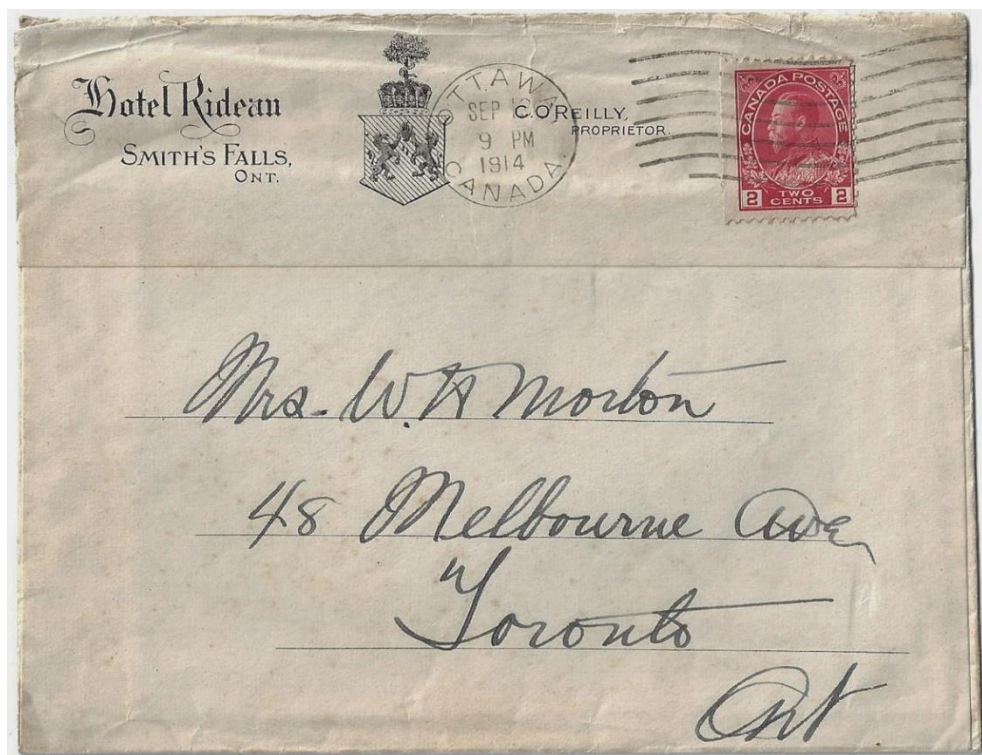 Hotel Rideau
SMITH'S FALLS,
ONT.
OTTAWA
SEP
9 PM
1914
CANADA.
C. O'REILLY,
PROPRIETOR.
CANADA POSTAGE
2 TWO CENTS 2
Mrs. W. H Morton
48 Melbourne Ave
Toronto
Ont